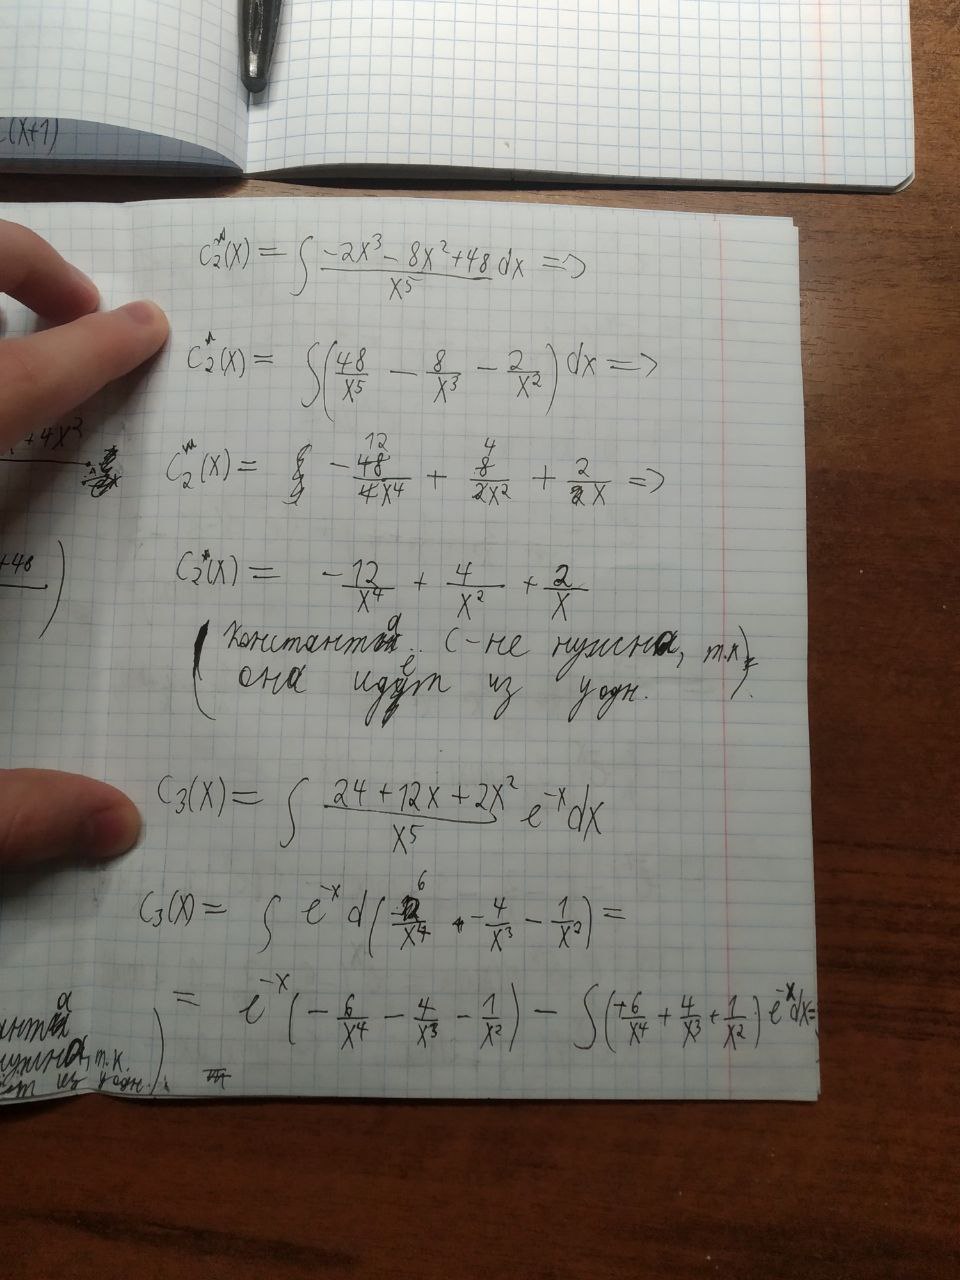 C(x+1)
C₂ᴵᴵ(x) = ∫ (-2x³ - 8x² + 48)/x⁵ dx =>
C₂(x) = ∫(48/x⁵ - 8/x³ - 2/x²) dx =>
+ 4x²
C₂(x) = - 48/4x⁴ + 8/2x² + 2/x =>
+48
C₂(x) = -12/x⁴ + 4/x² + 2/x
(Константа C - не нужна, т.к.
она идет из yодн.)
C₃(x) = ∫ (24 + 12x + 2x²)/x⁵ e⁻ˣ dx
C₃(x) = ∫ e⁻ˣ d(-6/x⁴ - 4/x³ - 1/x²) =
= e⁻ˣ (-6/x⁴ - 4/x³ - 1/x²) - ∫(+6/x⁴ + 4/x³ + 1/x²) e⁻ˣ dx =
анта
нужна, т.к.
ет из yодн.)